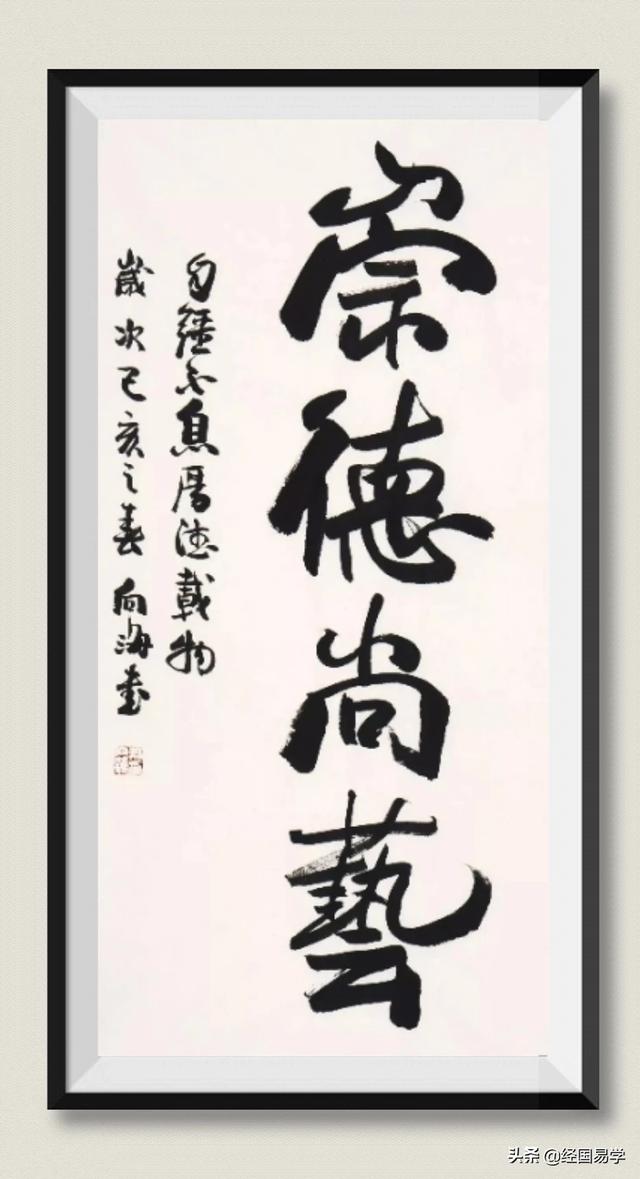 崇德尚藝
自彊不息厚德載物
歲次己亥之春 向海書
头条 @经国易学